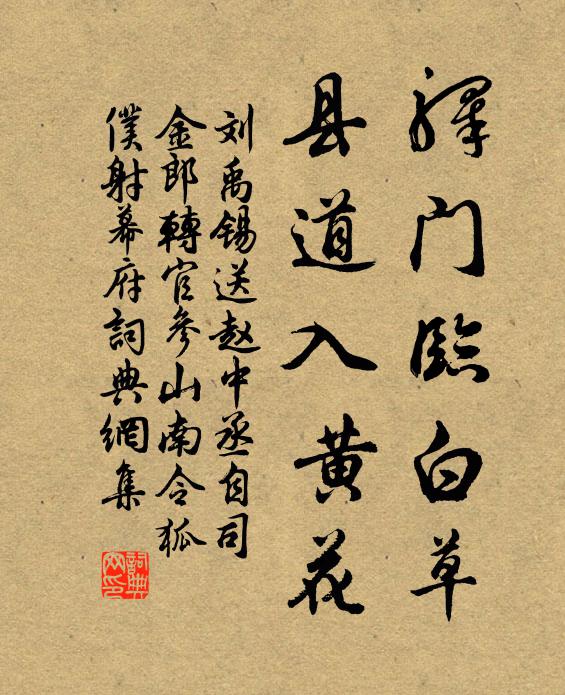 驛门臨白草
县道入黄花
刘禹锡送赵中丞自司
金郎轉官參山南令狐
僕射幕府詞典網集
詞典
网印